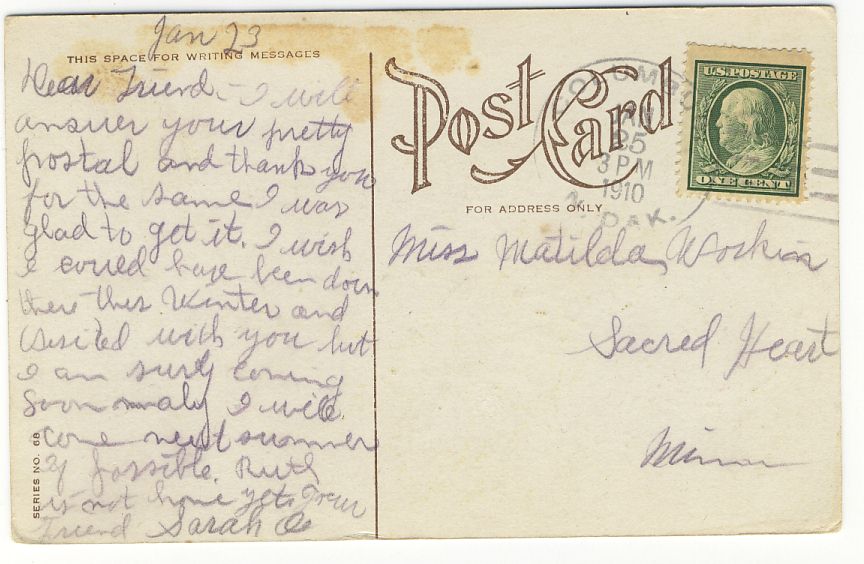 Jan 23
THIS SPACE FOR WRITING MESSAGES
Dear Friend - I will
answer your pretty
postal and thank you
for the same I was
glad to get it. I wish
I could have been down
there this Winter and
visited with you but
I am surly coming
Soon I will
come next summer
if possible. Ruth
is not home yet. Your
Friend Sarah
SERIES NO. 68
Post Card
FOR ADDRESS ONLY
COLUMBUS
JAN
25
3 PM
1910
N. DAK.
U.S. POSTAGE
ONE CENT
Miss Matilda
Sacred Heart
Minn